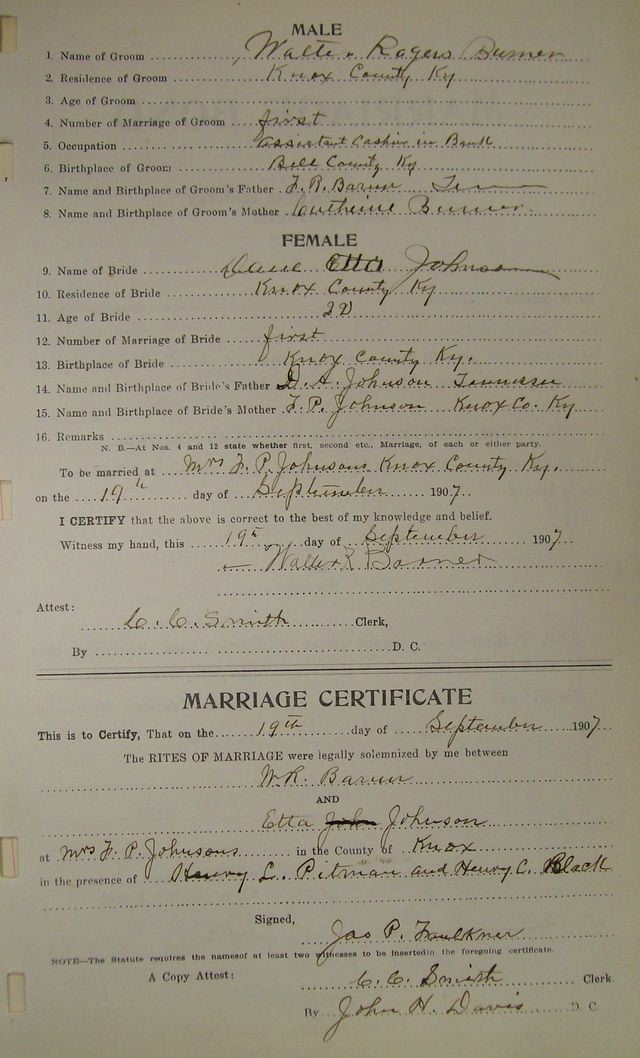 MALE
1. Name of Groom Walter Rogers Barner
2. Residence of Groom Knox County Ky
3. Age of Groom
4. Number of Marriage of Groom first
5. Occupation assistant Cashier in Bank
6. Birthplace of Groom Bell County Ky
7. Name and Birthplace of Groom's Father F. R. Barner
8. Name and Birthplace of Groom's Mother Barner
FEMALE
9. Name of Bride Etta Johnson
10. Residence of Bride Knox County Ky
11. Age of Bride
12. Number of Marriage of Bride first
13. Birthplace of Bride Knox County Ky.
14. Name and Birthplace of Bride's Father D. A. Johnson Tennessee
15. Name and Birthplace of Bride's Mother F. P. Johnson Knox Co. Ky
16. Remarks
N. B.—At Nos. 4 and 12 state whether first, second etc., Marriage, of each or either party.
To be married at Mrs F. P. Johnsons Knox County Ky.
on the 19th day of September 1907
I CERTIFY that the above is correct to the best of my knowledge and belief.
Witness my hand, this 19th day of September 1907
Walter R Barner
Attest:
C. C. Smith Clerk,
By D. C.
MARRIAGE CERTIFICATE
This is to Certify, That on the 19th day of September 1907
The RITES OF MARRIAGE were legally solemnized by me between
W. R. Barner
AND
Etta Johnson
at Mrs F. P. Johnsons in the County of Knox
in the presence of Henry L. Pitman and Henry C. Black
Signed,
Jas P. Faulkner
NOTE—The Statute requires the namesof at least two witnesses to be insertedin the foregoing certificate.
A Copy Attest: C. C. Smith Clerk
By John H. Davis D. C.